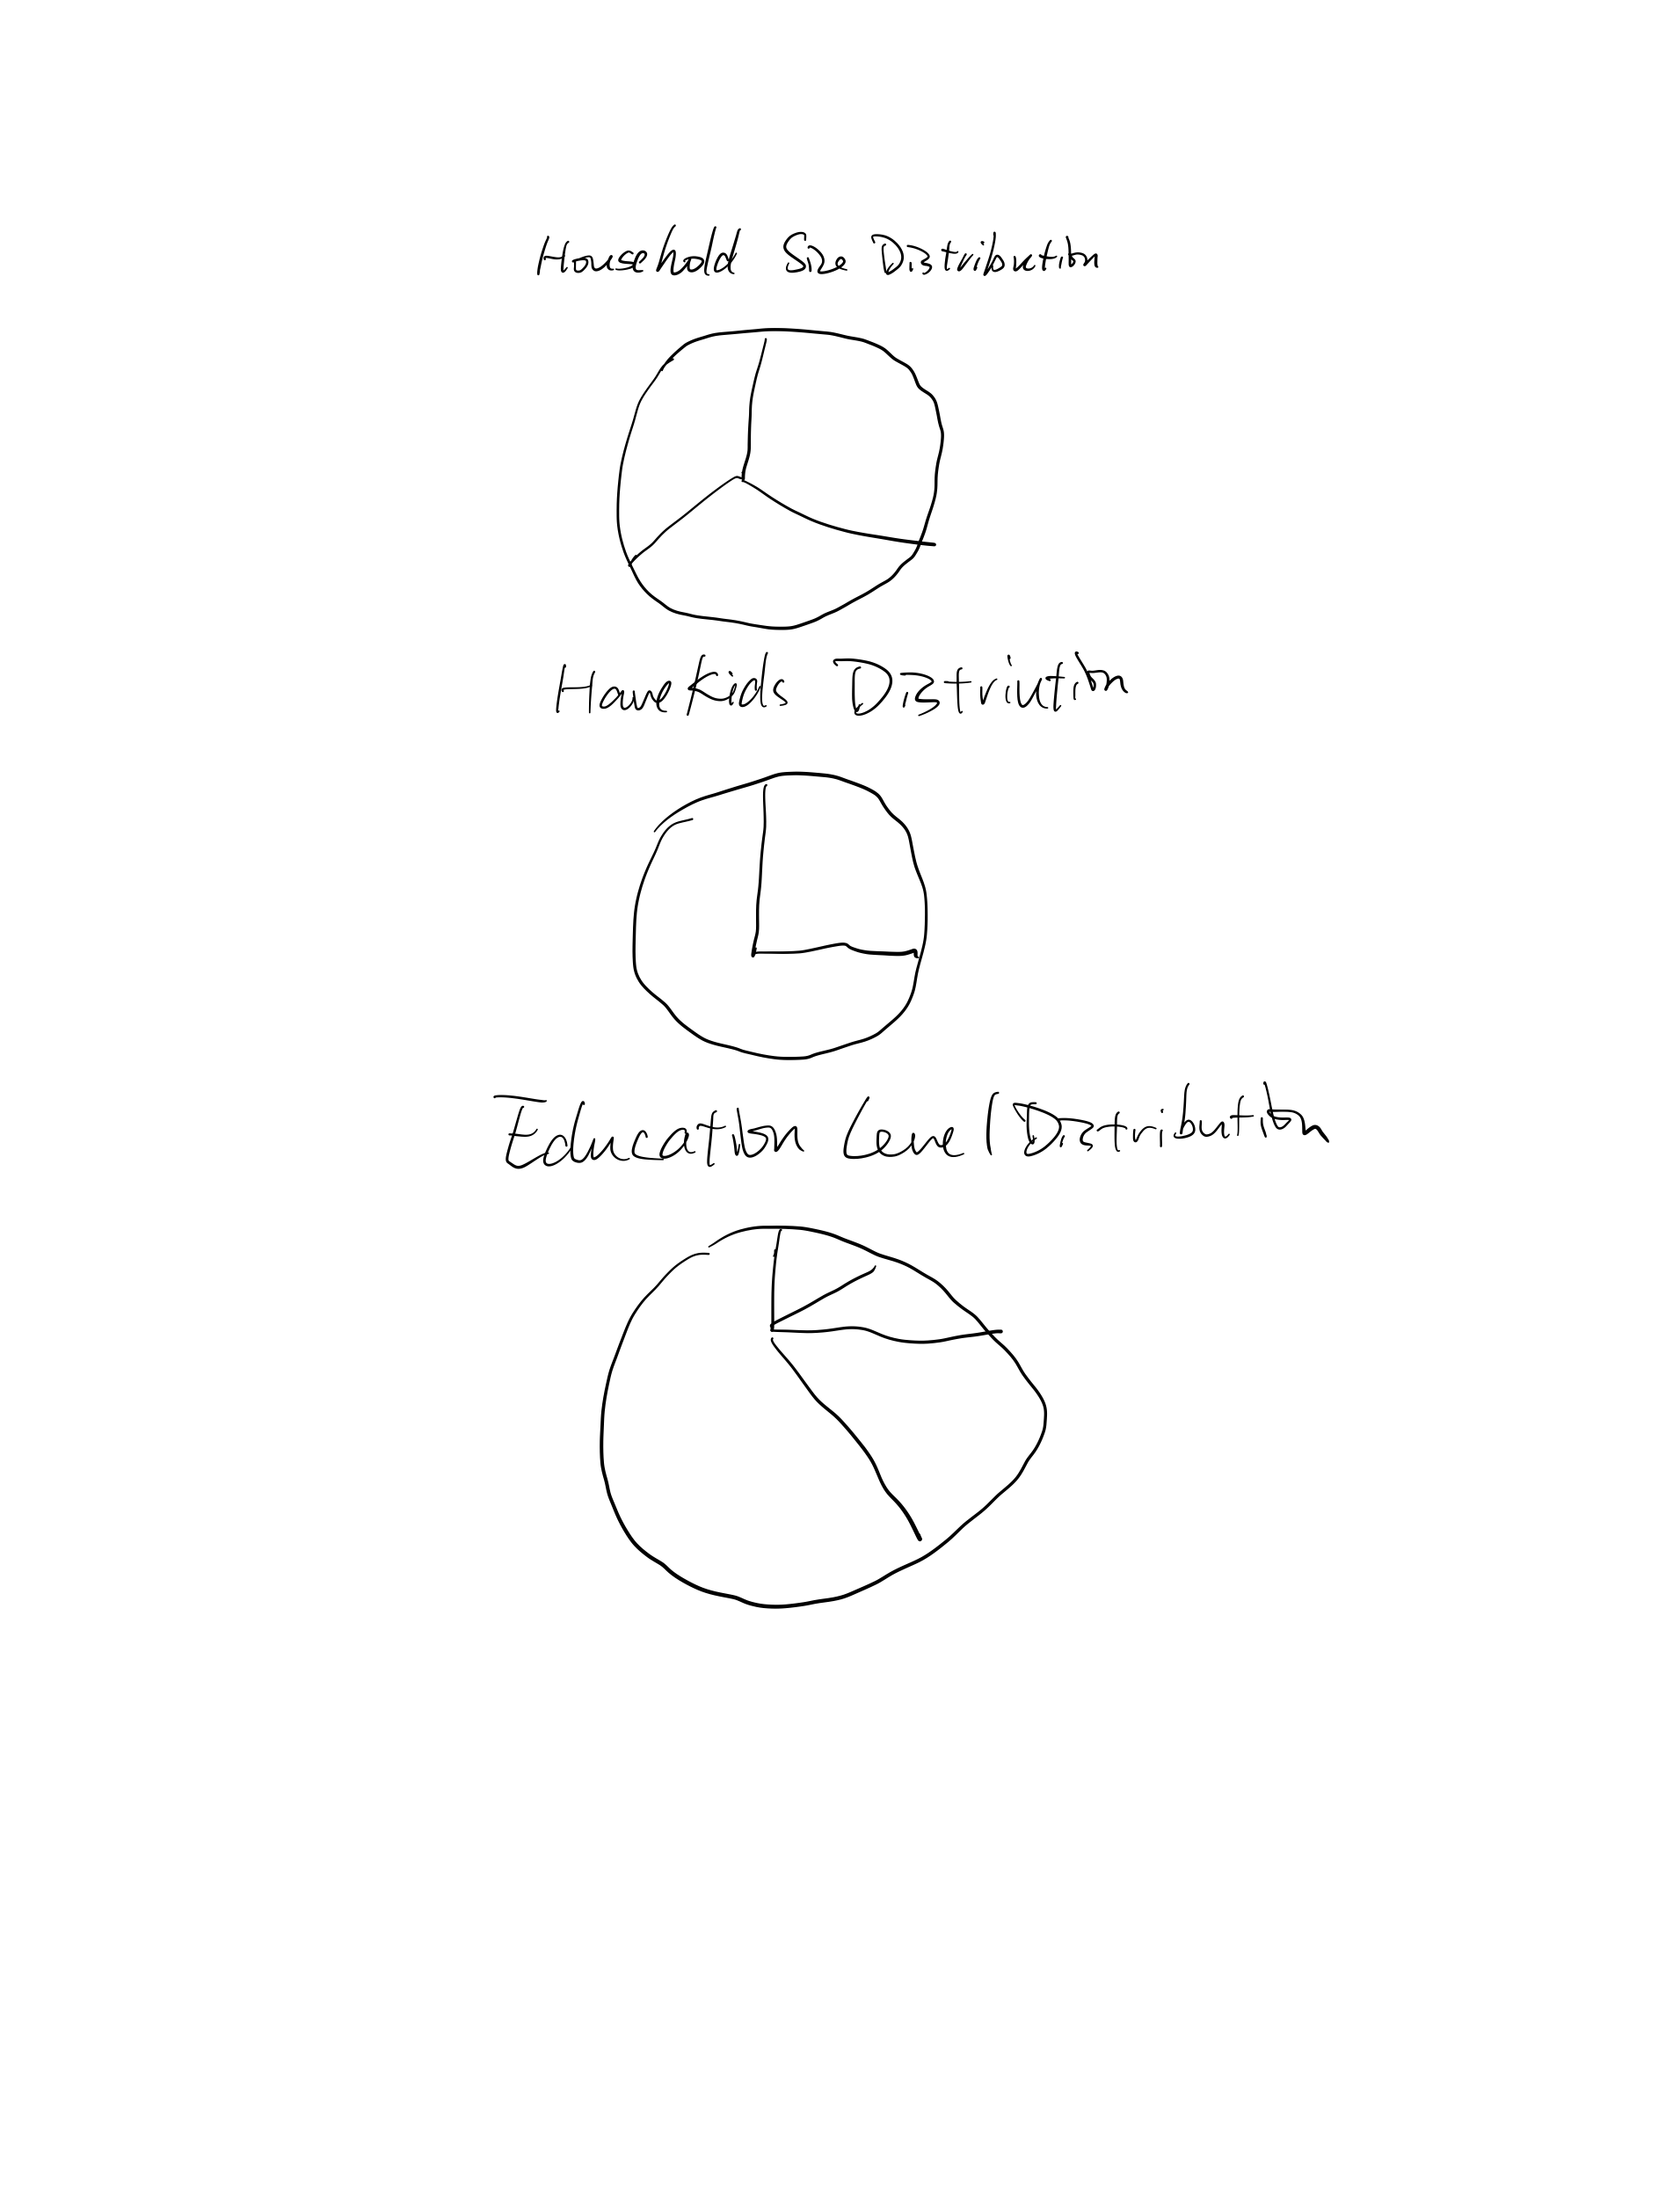 Household Size Distribution
Have Kids Distribution
Education Level Distribution